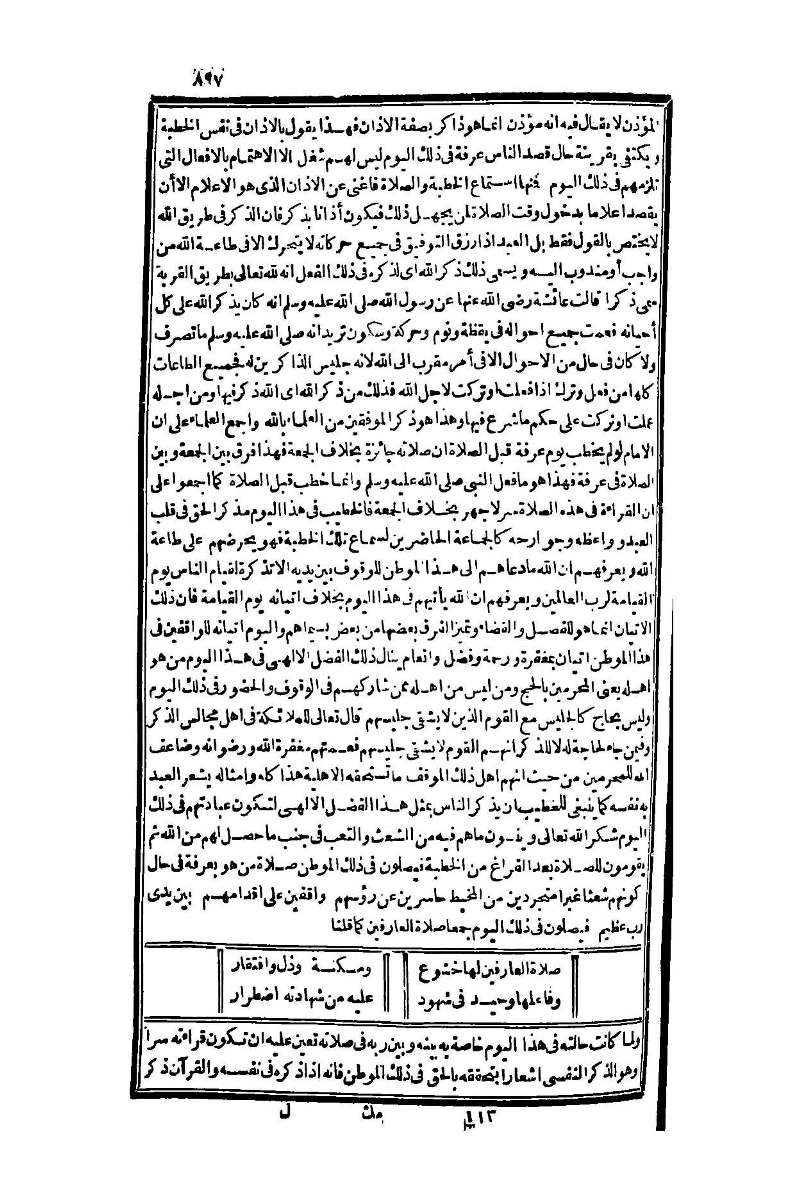 ٨٩٧
المؤذن لا يقال فيه انه مؤذن انما هو ذاكر بصفة الاذان فهذا يقول بالاذان في نفس الخطبة
ويكتفي بقرينة حال قصد الناس عرفة في ذلك اليوم ليس لهم شغل الا الاهتمام بالافعال التي
تلزمهم في ذلك اليوم فمنها استماع الخطبة والصلاة فاغنى عن الاذان الذي هو الاعلام الا أن
يقصد اعلاما بدخول وقت الصلاة لمن يجهل ذلك فيكون أذانا بذكر فان الذكر في طريق الله
لا يختص بالقول فقط بل العبد اذا رزق التوفيق في جميع حركاته لا يتحرك الا في طاعة الله من
واجب أو مندوب اليه ويسمى ذلك ذكر الله اى لذكره في ذلك الفعل انه لله تعالى بطريق القربة
سمى ذكرا قالت عائشة رضى الله عنها عن رسول الله صلى الله عليه وسلم انه كان يذكر الله على كل
أحيانه فعمت جميع احواله في يقظة ونوم وحركة وسكون تريد انه صلى الله عليه وسلم ما تصرف
ولا كان في حال من الاحوال الا في أمر مقرب الى الله لانه جليس الذاكرين له فجميع الطاعات
كلها من فعل وترك اذا فعلت او تركت لاجل الله فذلك من ذكر الله اى الله ذكر فيها ومن اجله
عملت او تركت على حكم ما شرع فيها وهذا هو ذكر الموفقين من العلماء بالله واجمع العلماء على ان
الامام لو لم يخطب يوم عرفة قبل الصلاة ان صلاته جائزة بخلاف الجمعة فهذا فرق بين الجمعة وبين
الصلاة في عرفة فهذا هو ما فعل النبي صلى الله عليه وسلم وانما خطب قبل الصلاة كما اجمعوا على
ان القراءة في هذه الصلاة سر لا جهر بخلاف الجمعة فالخطيب في هذا اليوم مذكر الحق في قلب
العبد وواعظه وجوارحه كالجماعة الحاضرين لسماع تلك الخطبة فهو يحرضهم على طاعة
الله ويعرفهم ان الله ما دعاهم الى هذا الموطن للوقوف بين يديه الا تذكرة لقيام الناس يوم
القيامة لرب العالمين ويعرفهم ان الله يأتيهم في هذا اليوم بخلاف اتيانه يوم القيامة فان ذلك
الاتيان انما هو للفصل والقضاء وتميز الفرق بعضها من بعض بسيماهم واليوم اتيانه للواقفين في
هذا الموطن اتيان بمغفرة ورحمة وفضل وانعام ينال ذلك الفضل الالهى في هذا اليوم من هو
اهله يعنى المحرمين بالحج ومن ليس من اهله ممن شاركهم في الوقوف والحضور في ذلك اليوم
وليس بحاج كالجليس مع القوم الذين لا يشقى جليسهم قال تعالى للملائكة في اهل مجالس الذكر
وفيمن جاء لحاجة له لا للذكر انهم القوم لا يشقى جليسهم فعمتهم مغفرة الله ورضوانه وضاعف
الله للمحرمين من حيث انهم اهل ذلك الموقف ما تستحقه الاهلية هذا كله وامثاله يشعر العبد
به نفسه كما ينبغى للخطيب ان يذكر الناس بمثل هذا الفضل الالهى لتكون عبادتهم في ذلك
اليوم شكرا لله تعالى وينسون ما هم فيه من الشعث والتعب في جنب ما حصل لهم من الله ثم
يقومون للصلاة بعد الفراغ من الخطبة فيصلون في ذلك الموطن صلاة من هو بعرفة في حال
كونهم شعثا غبرا متجردين من المخيط حاسرين عن رؤسهم واقفين على اقدامهم بين يدى
رب عظيم فيصلون في ذلك اليوم جمعا صلاة العارفين كما قلنا
صلاة العارفين لها خشوع ومسكنة وذل وافتقار
وفاعلها وحيد في شهود عليه من شهادته اضطرار
ولما كانت حالته في هذا اليوم خاصة به بينه وبين ربه في صلاته تعين عليه ان تكون قراءته سرا
وهو الذكر النفسى اشعارا بتحققه بالحق في ذلك الموطن فانه اذا ذكره في نفسه والقرآن ذكر
١١٣ مك ل